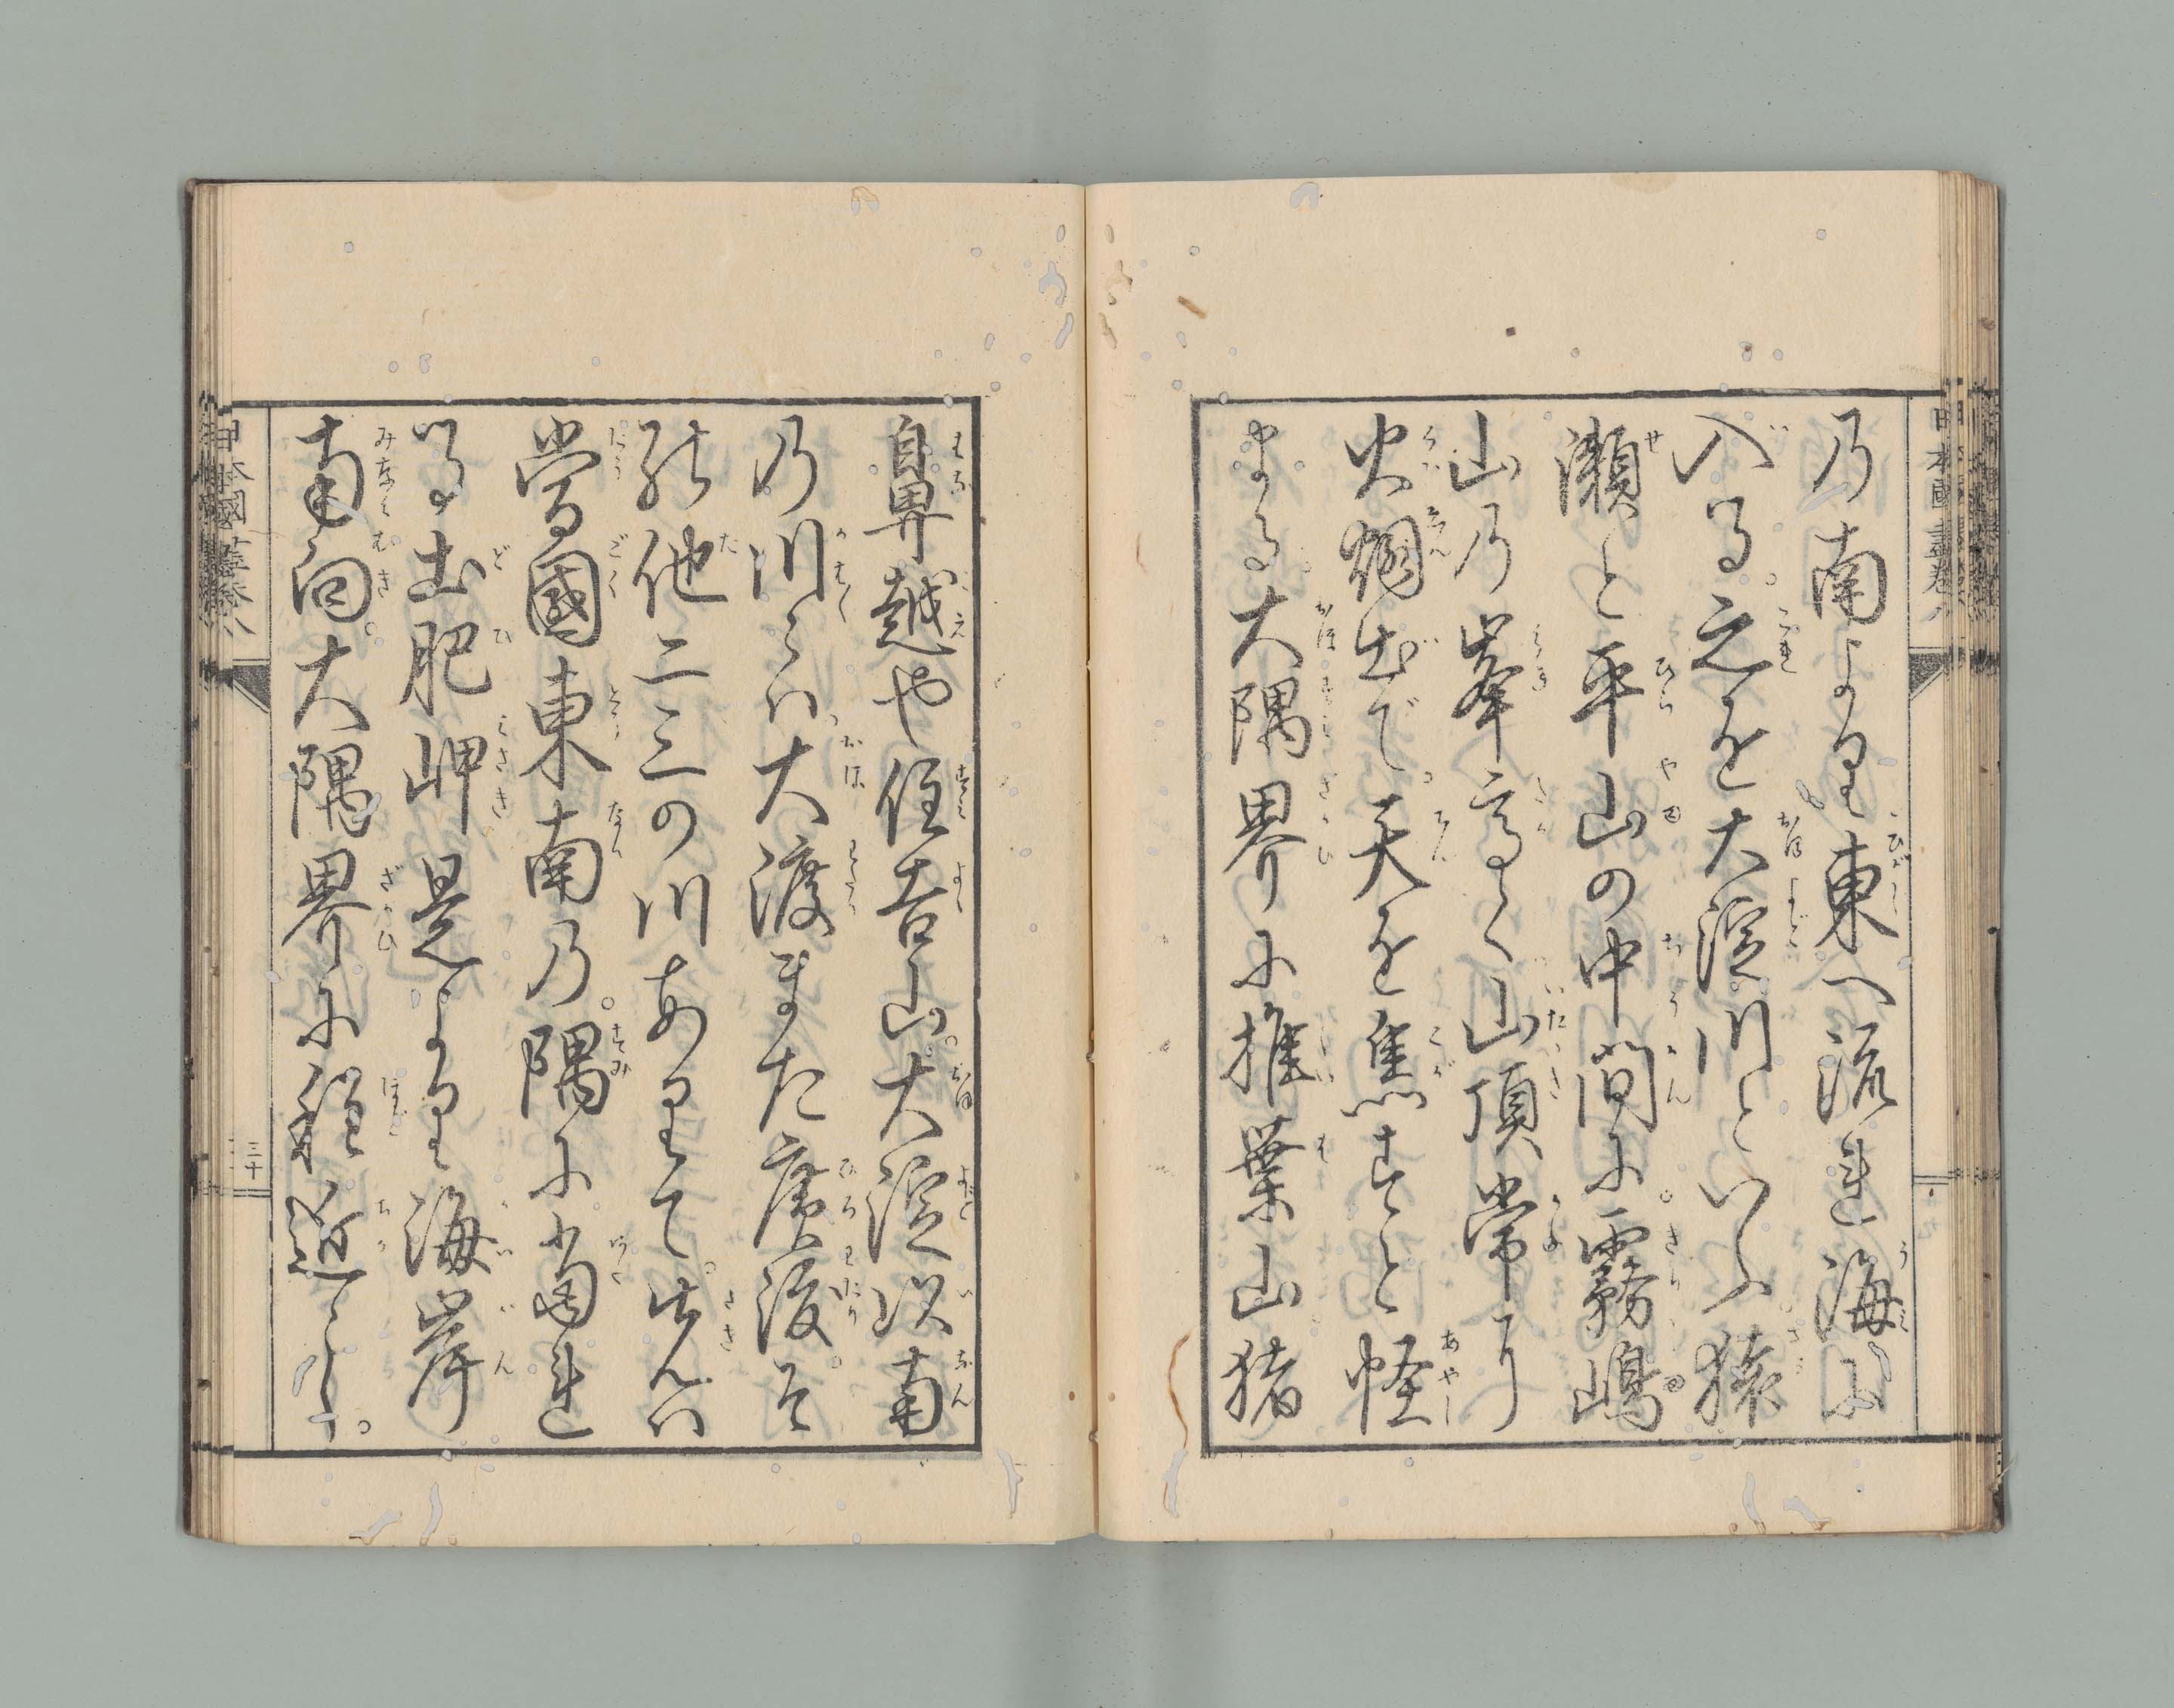 乃南より東へ流れ海に
入る之を大淀川といふ猿
瀬と平山の中間に霧嶋
山乃峯高く山頂常に
火烟出で天を焦すと怪
まる大隅界に推葉山猪
鼻越や住吉山大淀以南
乃川には大渡また広渡そ
の他二三の川ありて此さきは
當國東南乃隅に當れ
る都肥岬是より海岸
南向大隅界に程近し
日本國盡巻八
三十